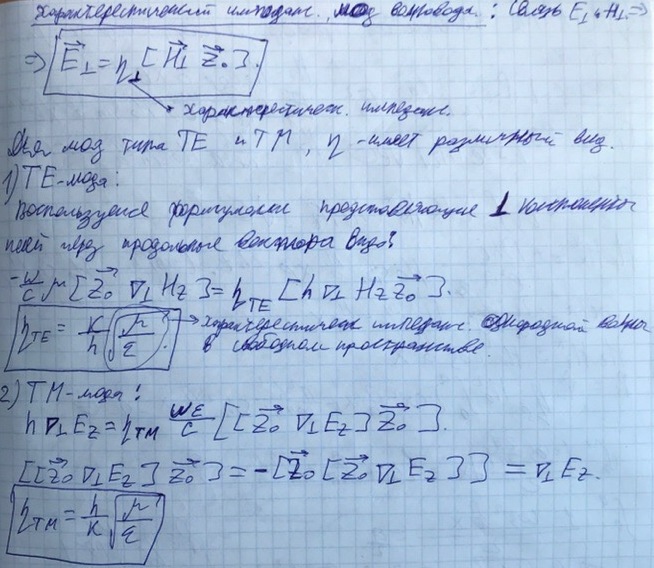 Характеристический импеданс мод волновода: Связь E⊥ и H⊥ ⇒
⇒ E⃗⊥ = η⊥ [H⃗⊥ z⃗₀].
характеристическ. импеданс.
Для мод типа TE и TM, η - имеет различный вид.
1) TE-мода:
Воспользуемся формулами представляющие ⊥ компоненты
полей через продольные вектора вида:
-ω/c μ [z⃗₀ ∇⊥ Hz] = η_TE [h ∇⊥ Hz z⃗₀].
η_TE = k/h √(μ/ε) → характеристическ импеданс. однородной волны
в свободном пространстве.
2) TM-мода:
h ∇⊥ Ez = η_TM ωε/c [[z⃗₀ ∇⊥ Ez] z⃗₀].
[[z⃗₀ ∇⊥ Ez] z⃗₀] = -[z⃗₀ [z⃗₀ ∇⊥ Ez]] = ∇⊥ Ez.
η_TM = h/k √(μ/ε)